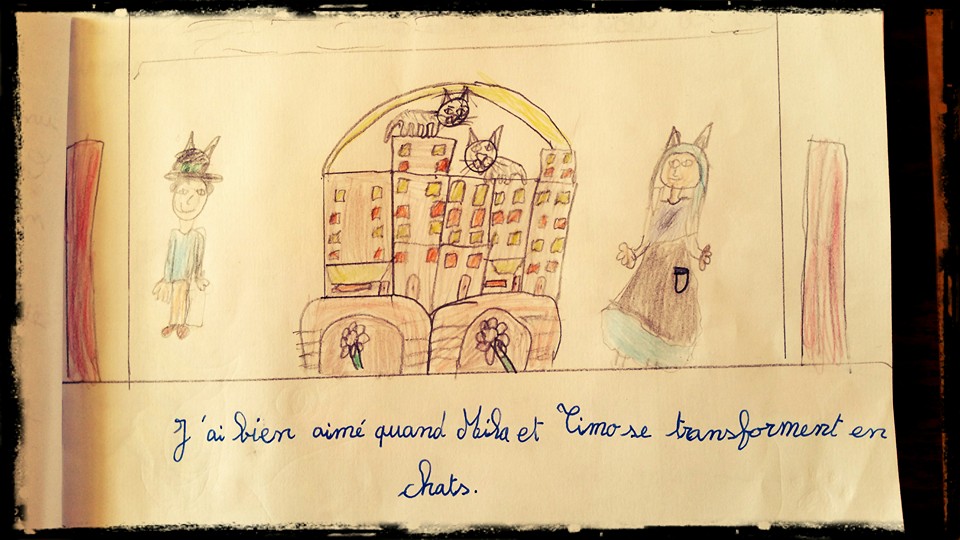 J'ai bien aimé quand Mila et Timo se transforment en
chats.